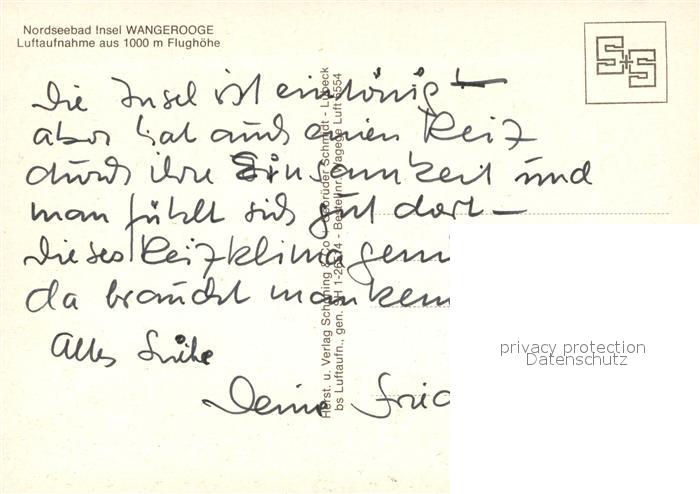 Nordseebad Insel WANGEROOGE
Luftaufnahme aus 1000 m Flughöhe
S+S
Die Insel ist eintönig –
aber hat auch einen Reiz
durch ihre Einsamkeit und
man fühlt sich gut dort –
dieses Reizklima
da braucht man
Alles Liebe
Deine
Herst. u. Verlag Schöning & Co + Gebrüder Schmidt - Lübeck
bs Luftaufn., gen. SH 1-26 /4 - Bestellnr. Wagege Luft 5554
privacy protection
Datenschutz